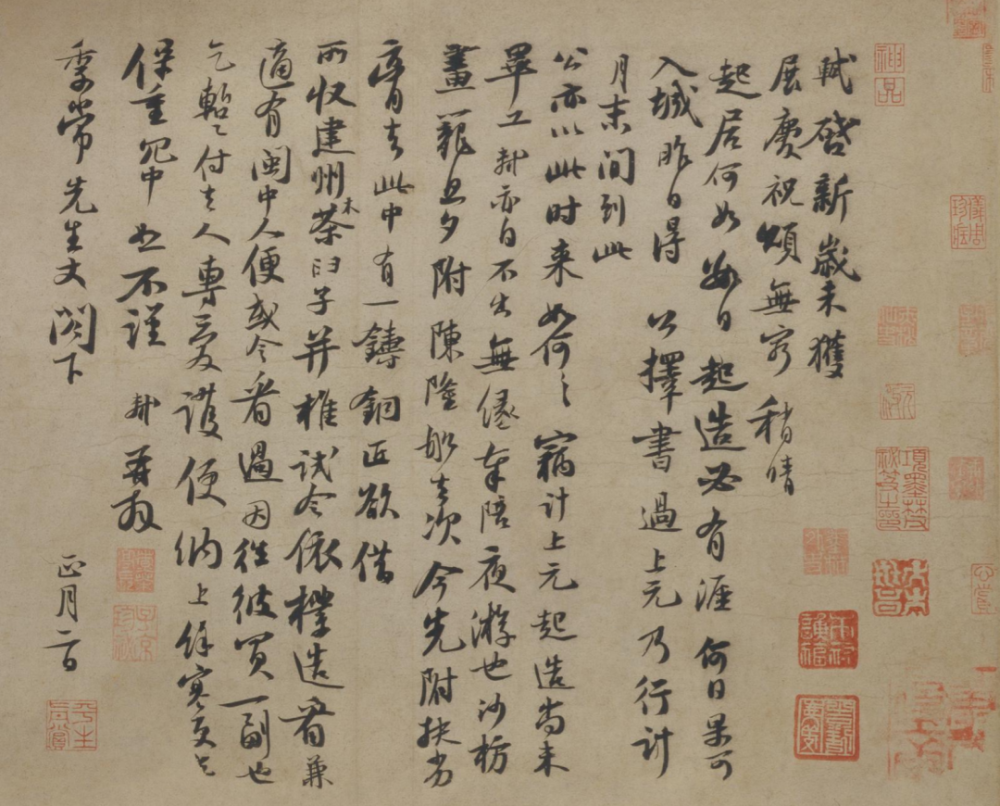 軾啓新歲未獲
展慶祝頌無窮稍晴
起居何如數日起造必有涯何日果可
入城昨日得 公擇書過上元乃行計
月末間到此
公亦以此時來如何〻竊計上元起造尚未
畢工軾亦自不出無緣奉陪夜游也沙枋
畫籠旦夕附陳隆船去次今先附扶劣
膏去此中有一鑄銅匠欲借
所收建州木茶臼子并椎試令依樣造看兼
適有閩中人便或令看過因往彼買一副也
乞暫付去人專愛護便納上餘寒更乞
保重冗中恕不謹 軾再拜
季常先生丈閣下
正月二日
神品
平生真賞